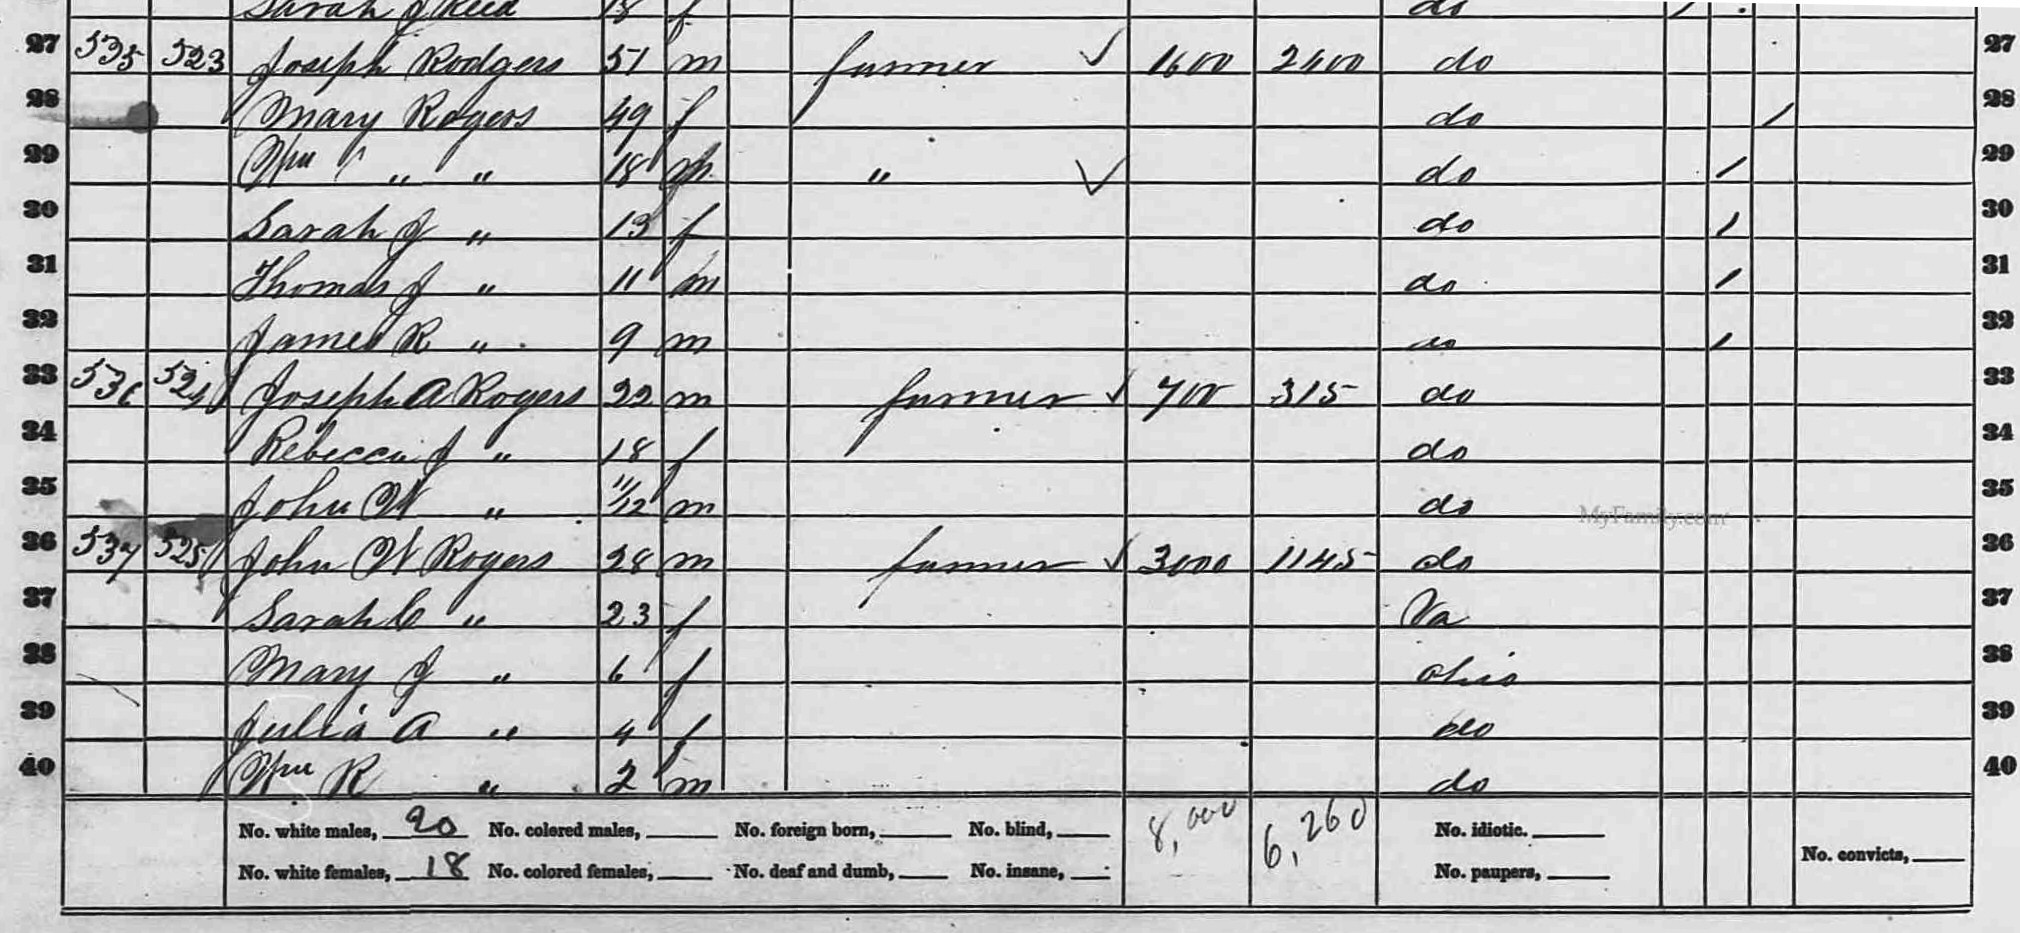 Sarah J Reed 18 f do /
27 535 523 Joseph Rodgers 51 m farmer ✓ 1600 2400 do 27
28 Mary Rogers 49 f do / 28
29 Wm " " 18 m " ✓ do / 29
30 Sarah J " 13 f do / 30
31 Thomas J " 11 m do / 31
32 James R " 9 m do / 32
33 536 524 Joseph A Rogers 22 m farmer ✓ 700 315 do 33
34 Rebecca J " 18 f do 34
35 John W " 11/12 m do 35
MyFamily.com
36 537 525 John W Rogers 28 m farmer ✓ 3000 1145 do 36
37 Sarah C " 23 f Va 37
38 Mary J " 6 f Ohio 38
39 Julia A " 4 f do 39
40 Wm R " 2 m do 40
No. white males, 20 No. colored males, No. foreign born, No. blind, 8,000 6,260 No. idiotic.
No. white females, 18 No. colored females, No. deaf and dumb, No. insane, No. paupers, No. convicts,